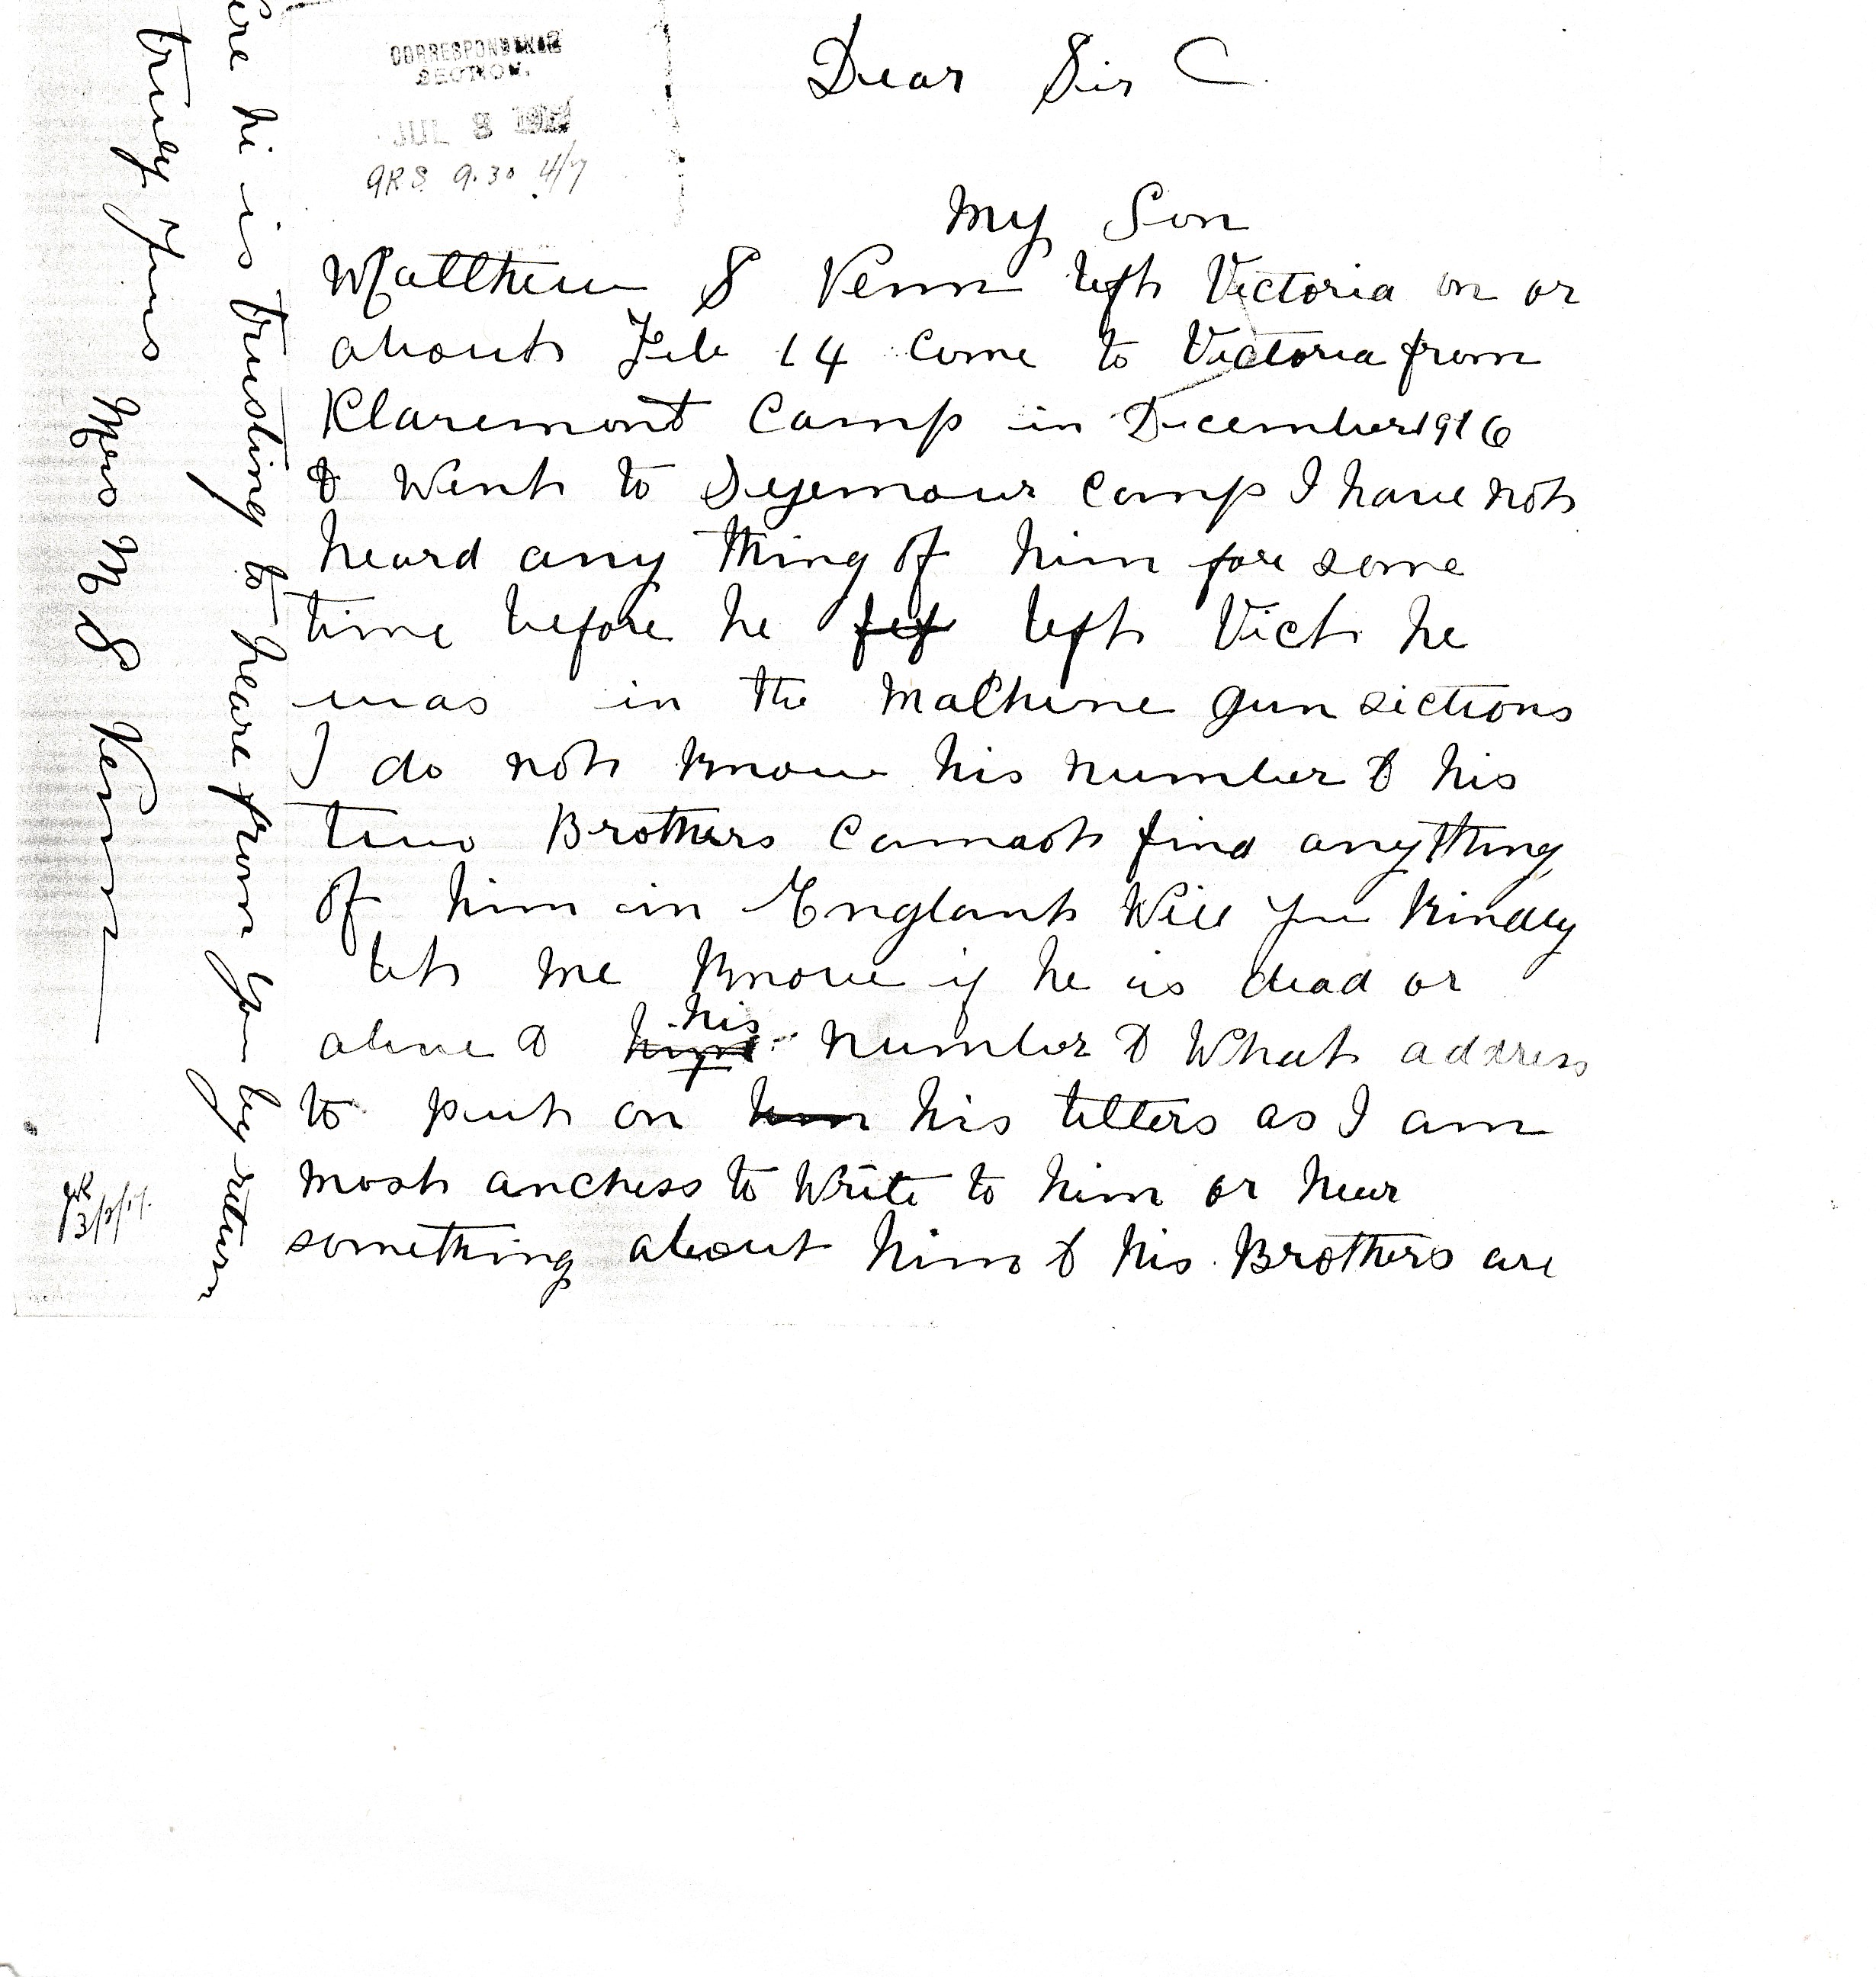 CORRESPONDENCE
SECTION.
JUL 8
9.30 4/7
Dear Sir
My Son
Matthew S Venn left Victoria on or
about Feb 14 Come to Victoria from
Klaremont Camp in December 1916
& went to Syemour Camp I have not
heard any thing of him fore some
time before he left Vict he
was in the Machine gun sections
I do not know his number & his
two Brothers Cannot find anything
of him in England Will you kindly
let me know if he is dead or
alive & his number & What address
to put on him his letters as I am
most anchess to Write to him or hear
something about him & his Brothers are
hi is trusting to heare from you by return
truly yours
Mrs M S Venn